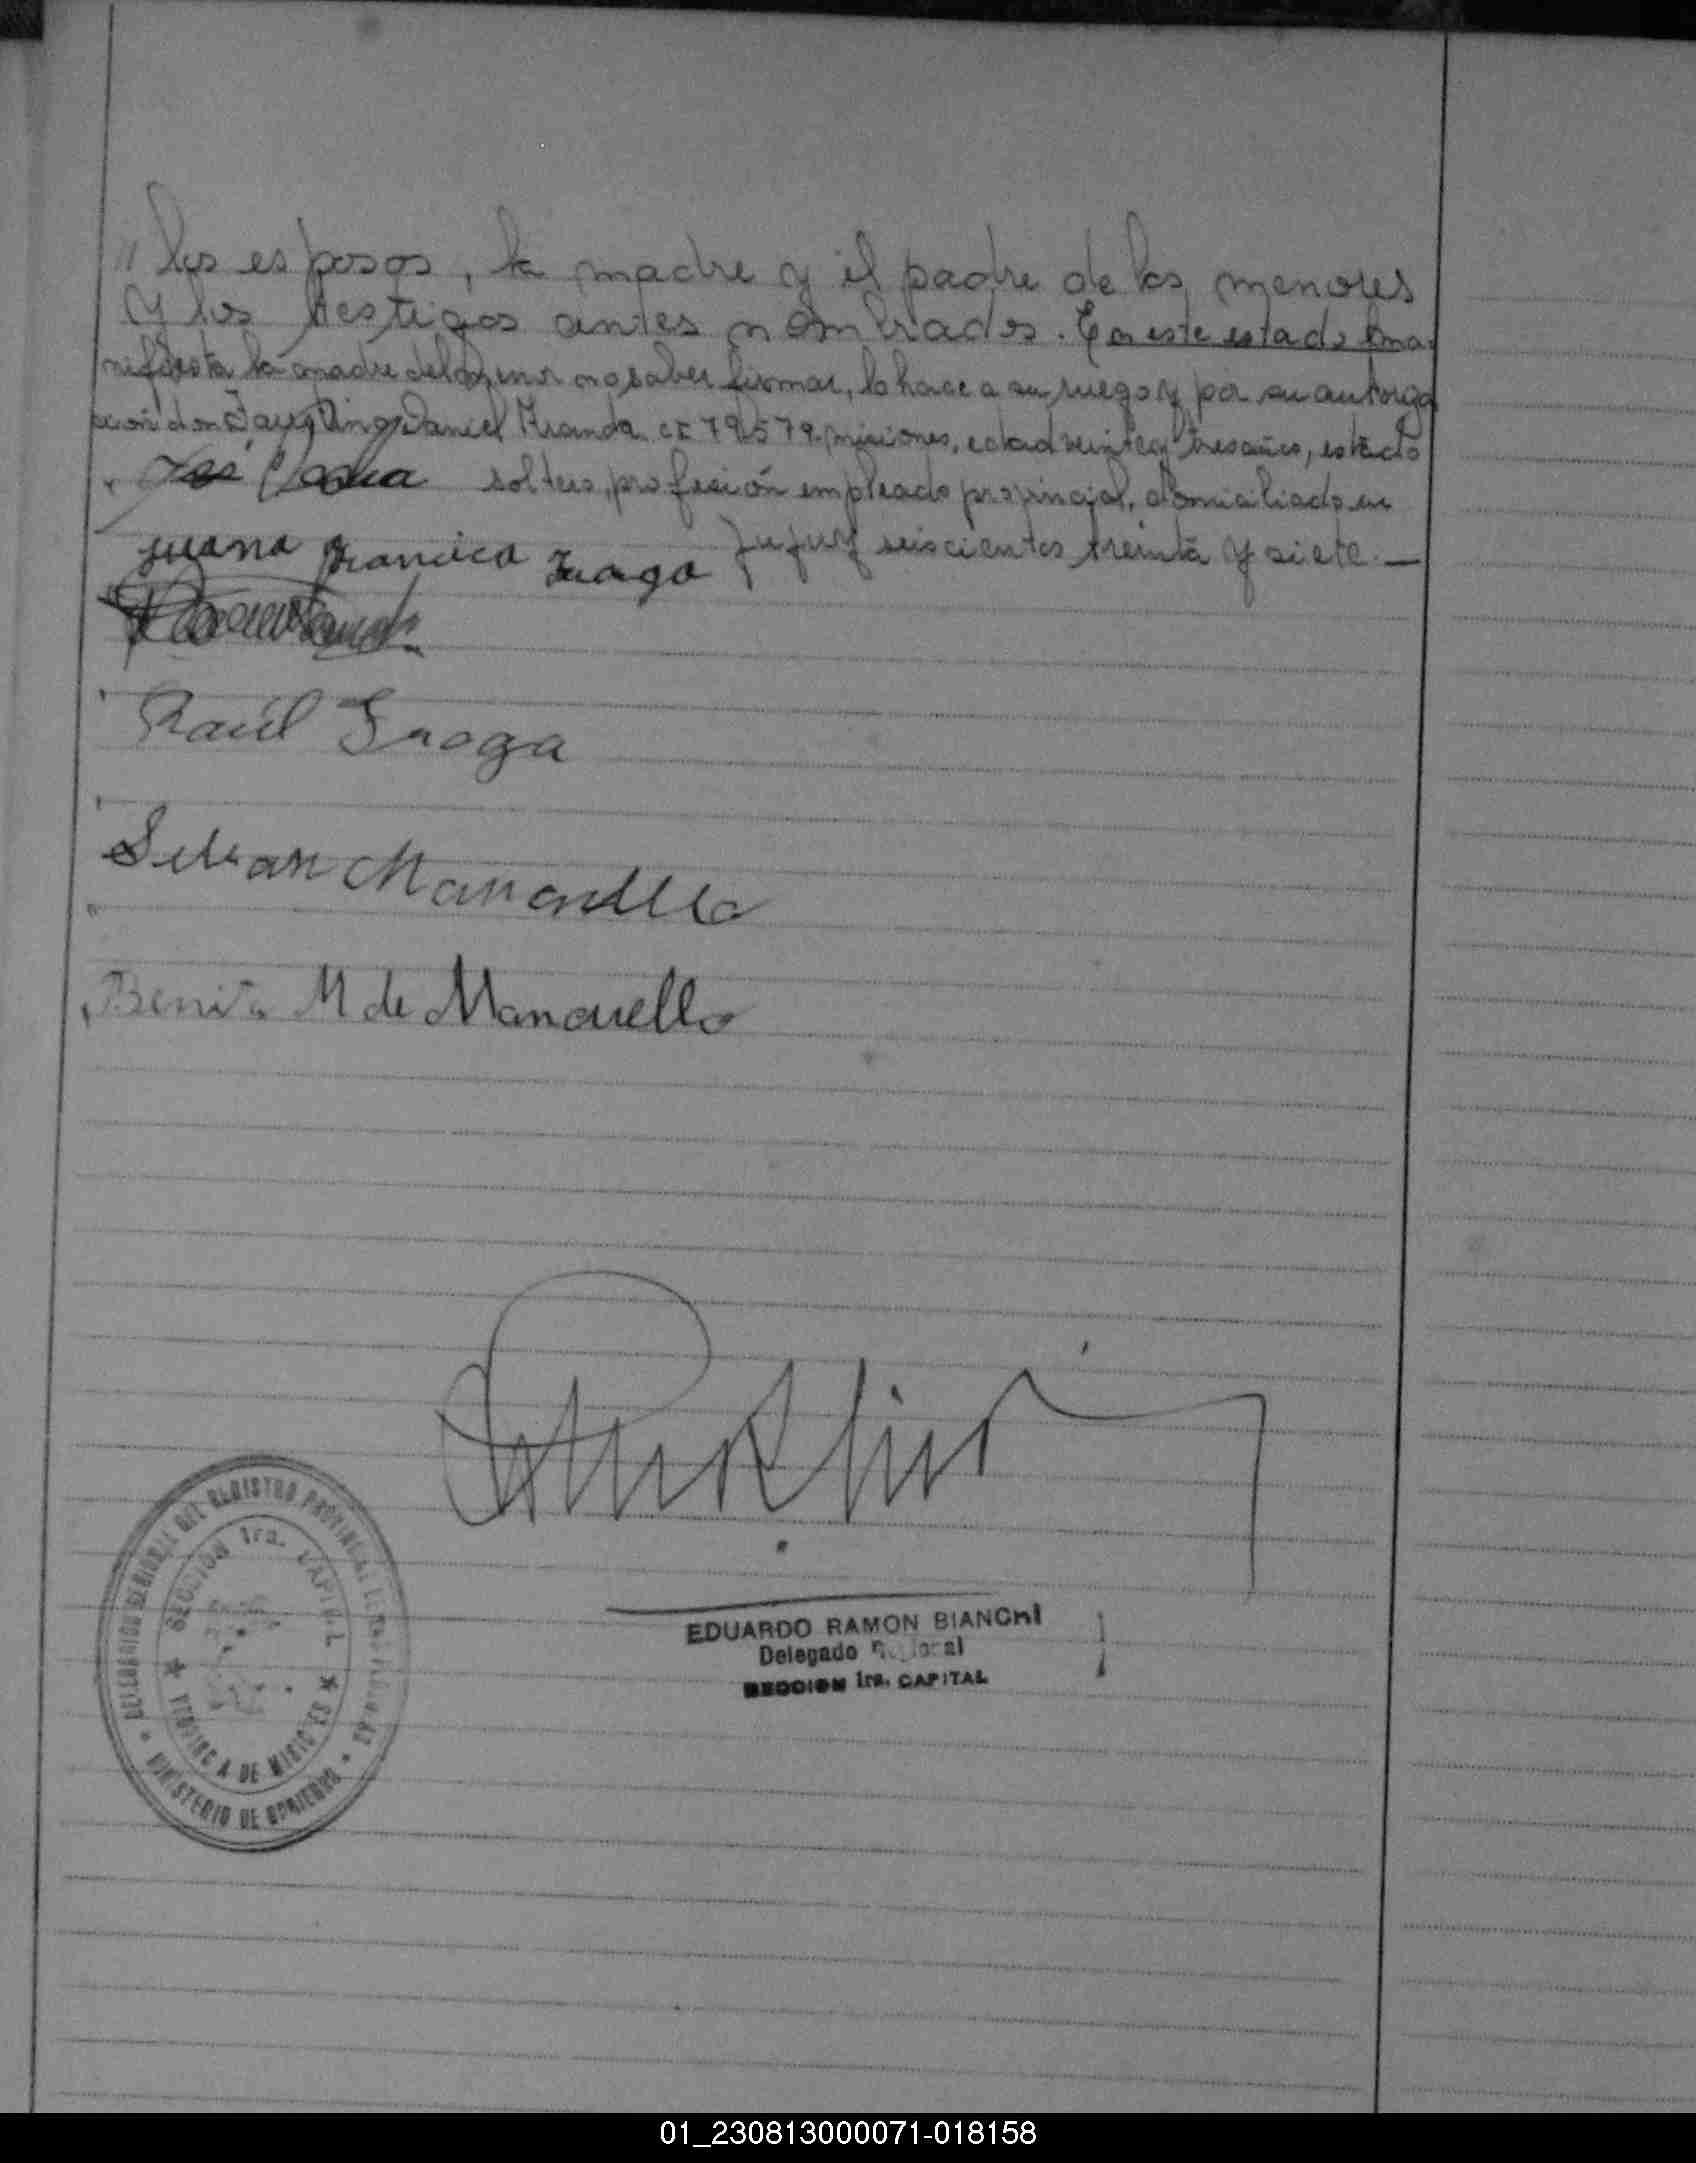 " los esposos, la madre y el padre de los menores
y los testigos antes nombrados. En este estado ma-
nifiesta la madre del menor no saber firmar, lo hace a su ruego y por su autoriza
ción don Daniel Miranda CI 79579 misiones, edad veinte y tres años, estado
José soltero, profesión empleado provincial, domiciliado en
Juana Francisca Fraga Jujuy seiscientos treinta y siete.—
Raúl Fraga
Benita M de Manarello
EDUARDO RAMON BIANCHI
Delegado
SECCION 1ra. CAPITAL
DELEGACION GENERAL DEL REGISTRO PROVINCIAL DE LAS PERSONAS
SECCION 1ra. CAPITAL
PROVINCIA DE MISIONES
MINISTERIO DE GOBIERNO
01_230813000071-018158